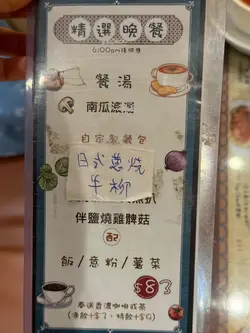 精選晚餐
6:00pm後供應
餐湯
南瓜濃湯
自家製餐包
日式蔥燒
牛柳
扒
伴鹽燒雞髀菇
配
飯/意粉/薯菜
$83
奉送香濃咖啡或茶
(凍飲+$3、特飲+$9)